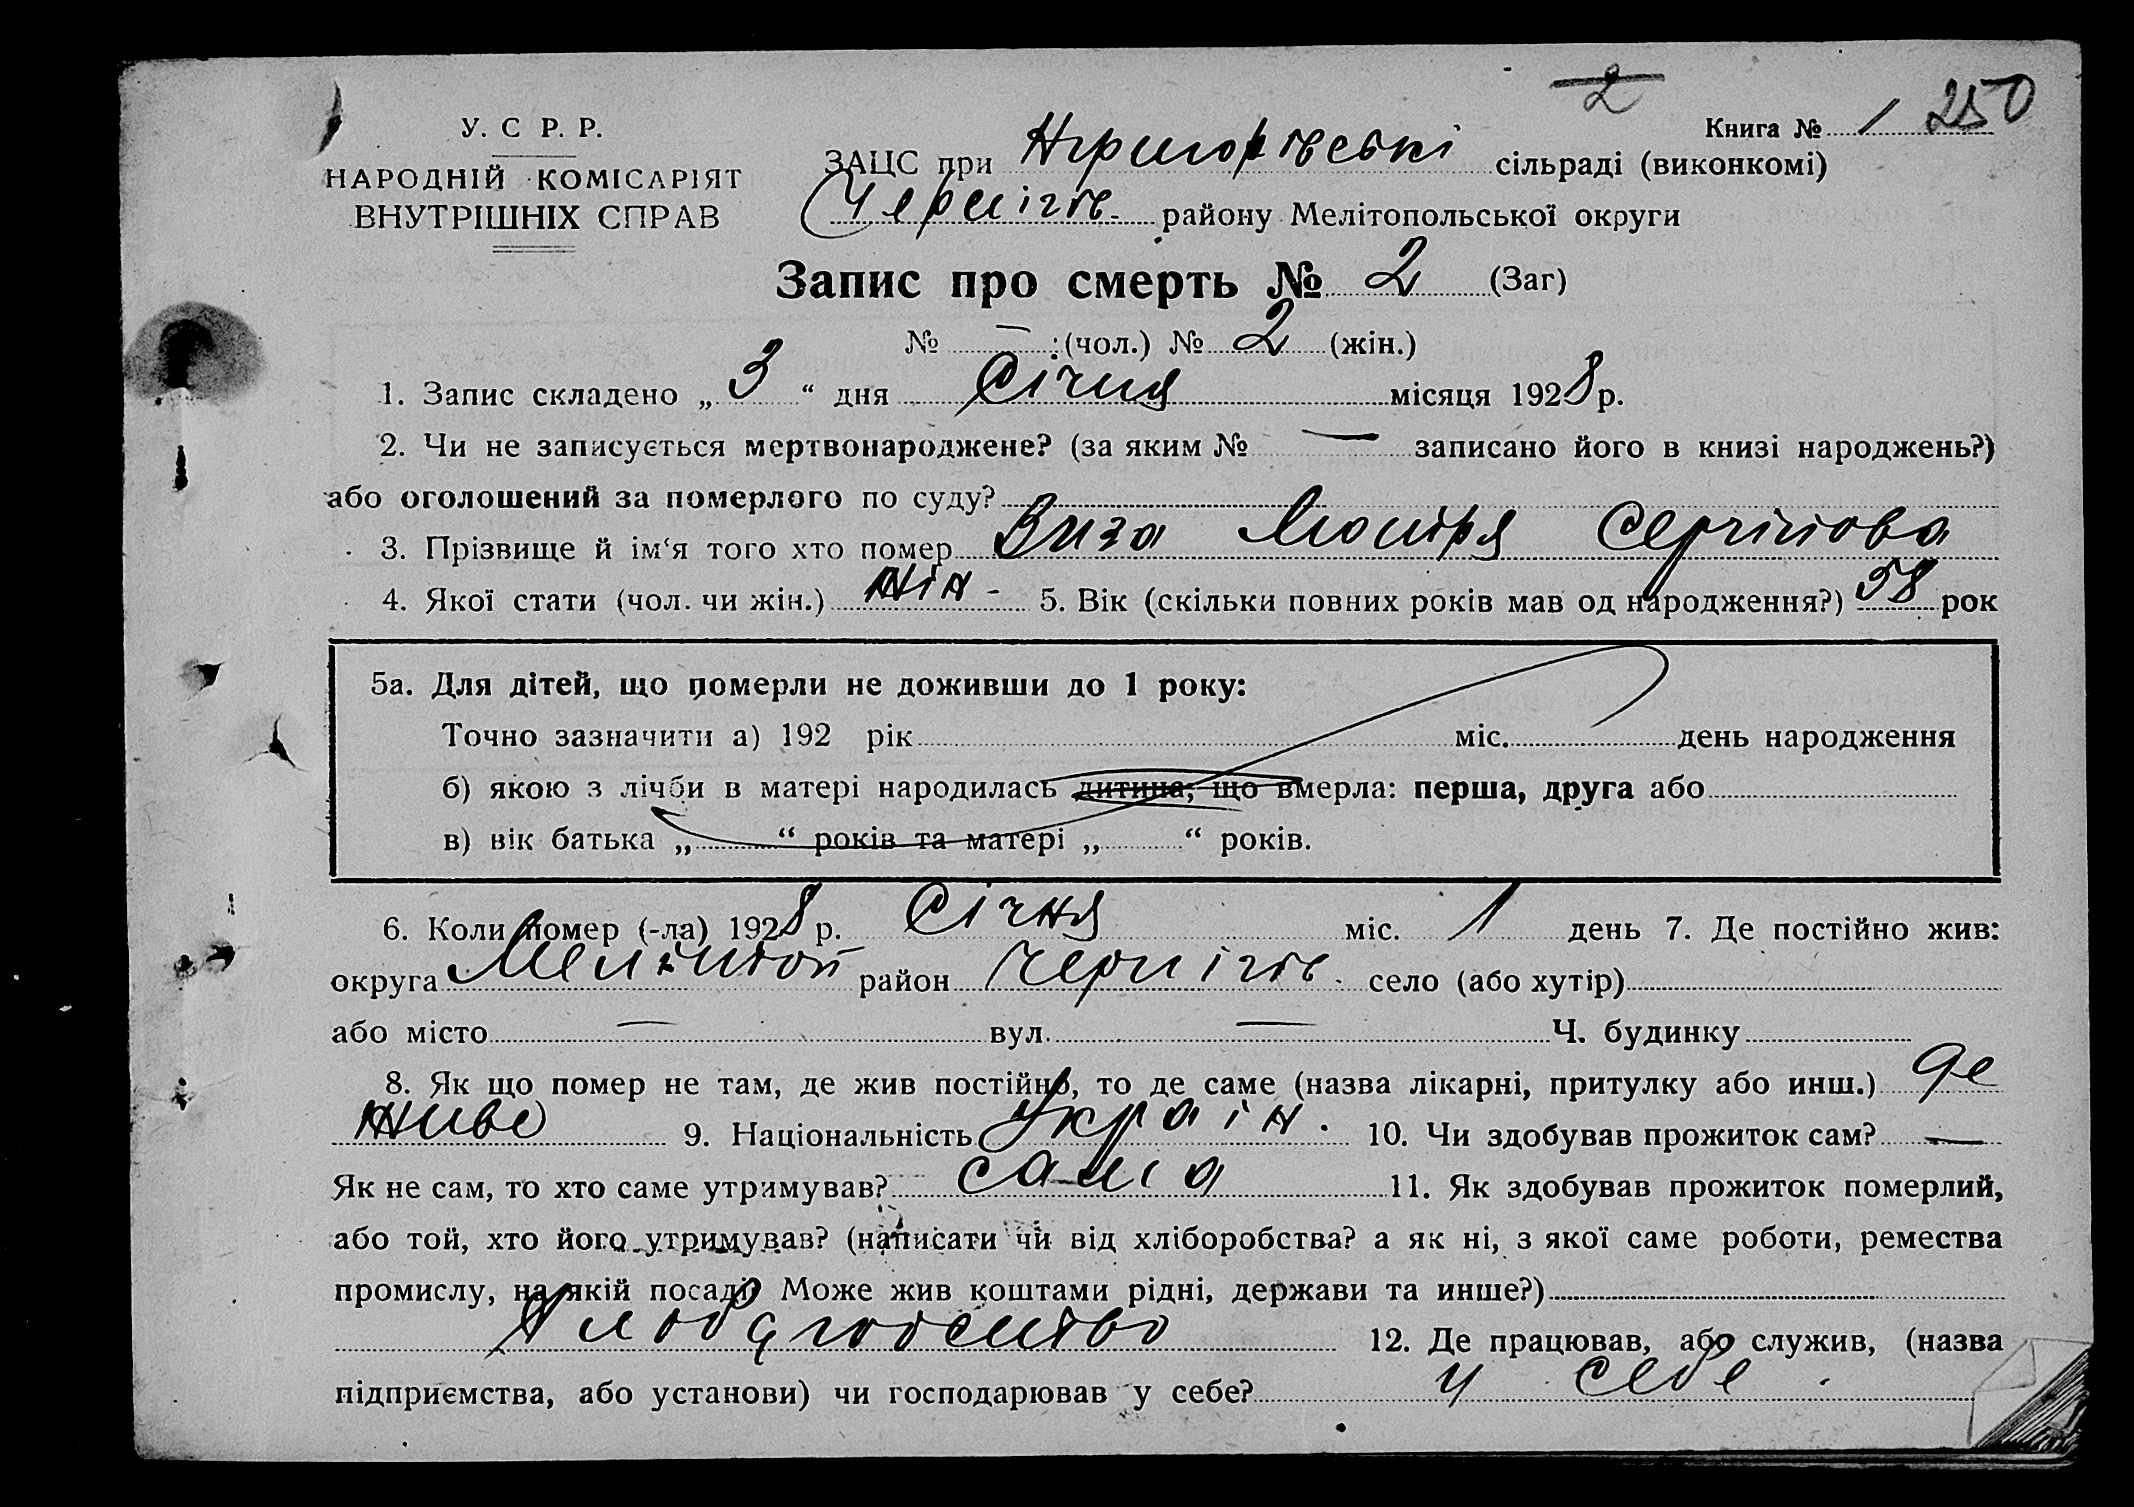 2
Книга № 1 250
У. С Р. Р.
НАРОДНІЙ КОМІСАРІЯТ
ВНУТРІШНІХ СПРАВ
ЗАЦС при сільраді (виконкомі)
Чернігів. району Мелітопольської округи
Запис про смерть № 2 (Заг)
№ — (чол.) № 2 (жін.)
1. Запис складено „ 3 “ дня Січня місяця 1928 р.
2. Чи не записується мертвонароджене? (за яким № — записано його в книзі народжень?)
або оголошений за померлого по суду?
3. Прізвище й ім‘я того хто помер
4. Якої стати (чол. чи жін.) жін - 5. Вік (скільки повних років мав од народження?) 58 рок
5а. Для дітей, що померли не доживши до 1 року:
Точно зазначити а) 192 рік міс. день народження
б) якою з лічби в матері народилась дитина, що вмерла: перша, друга або
в) вік батька „ “ років та матері „ “ років.
6. Коли помер (-ла) 1928 р. Січня міс. 1 день 7. Де постійно жив:
округа Мелітоп район Чернігів. село (або хутір)
або місто — вул. — Ч. будинку
8. Як що помер не там, де жив постійно, то де саме (назва лікарні, притулку або инш.) де
живе 9. Національність Україн. 10. Чи здобував прожиток сам? —
Як не сам, то хто саме утримував? сама 11. Як здобував прожиток померлий,
або той, хто його утримував? (написати чи від хліборобства? а як ні, з якої саме роботи, ремества
промислу, на якій посаді? Може жив коштами рідні, держави та инше?)
12. Де працював, або служив, (назва
підприємства, або установи) чи господарював у себе? у себе.